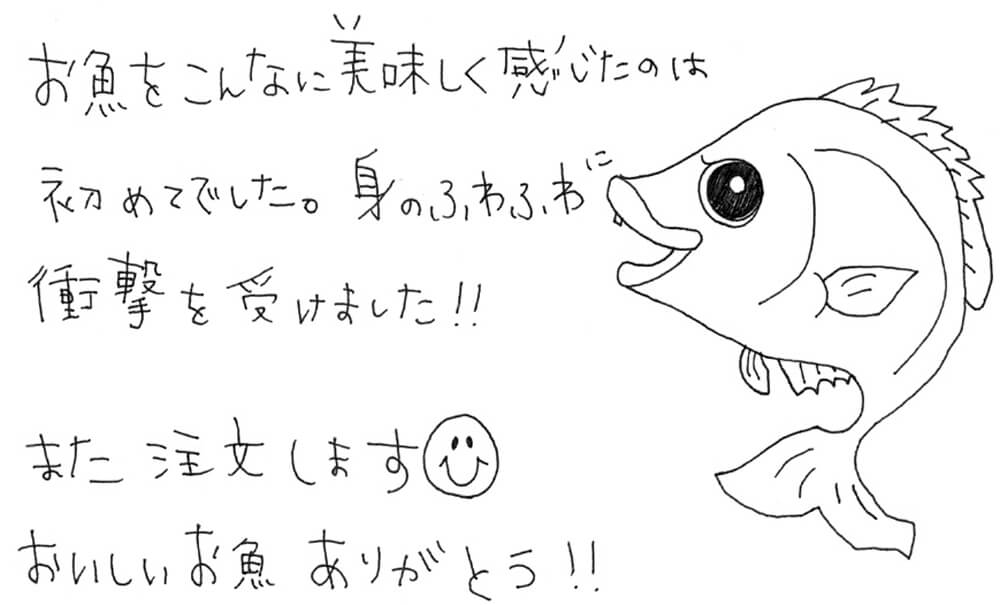 お魚をこんなに美味しく感じたのは
初めてでした。身のふわふわに
衝撃を受けました!!
また注文します
おいしいお魚ありがとう!!